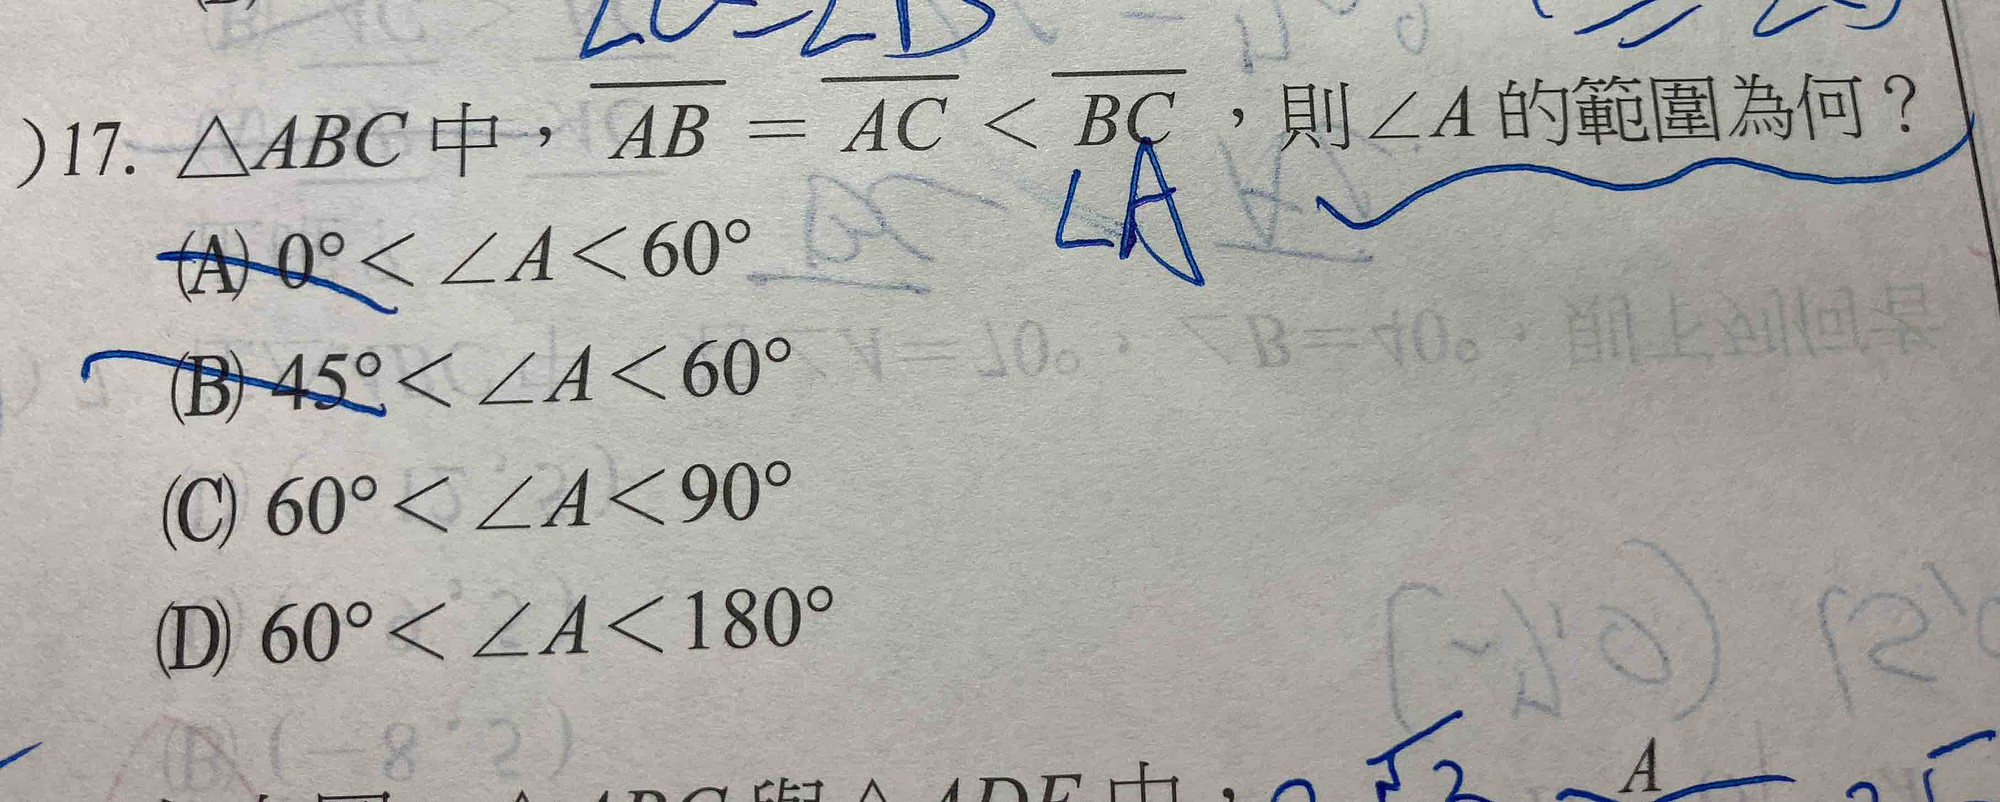 ∠C=∠B
)17. △ABC 中，AB = AC < BC，則∠A 的範圍為何？
∠A
(A) 0°< ∠A<60°
(B) 45°< ∠A<60°
(C) 60°< ∠A<90°
(D) 60°< ∠A<180°
A